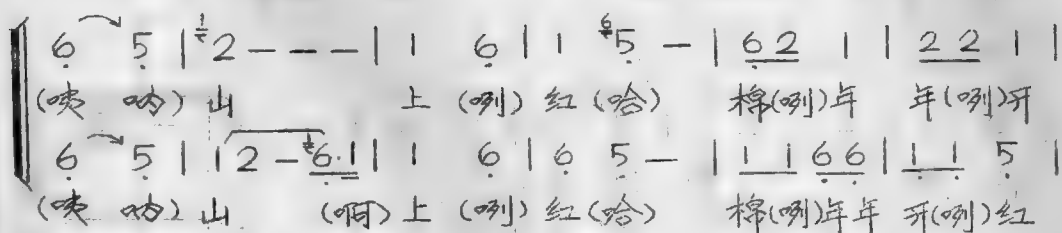 6 5 | 2 — — — | 1 6 | 1 5 — | 6 2 1 | 2 2 1 |
(咦 呐) 山 上 (咧) 红 (哈) 棉(咧)年 年(咧)开
6 5 | 1 2 — 6.1 | 1 6 | 6 5 — | 1 1 6 6 | 1 1 5 |
(咦 呐) 山 (啊) 上 (咧) 红 (哈) 棉(咧)年年 开(咧)红